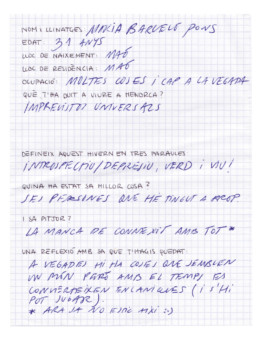 NOM I LLINATGES MACIÀ BARCELÓ PONS
EDAT 31 ANYS
LLOC DE NAIXEMENT: MAÓ
LLOC DE RESIDÈNCIA: MAÓ
OCUPACIÓ: MOLTES COSES I CAP A LA VEGADA
QUÈ T'HA DUIT A VIURE A MENORCA?
IMPREVISTOS UNIVERSALS
DEFINEIX AQUEST HIVERN EN TRES PARAULES
INTROSPECTIU/DEPRESSIU, VERD I VIU!
QUINA HA ESTAT SA MILLOR COSA?
SES PERSONES QUE HE TINGUT A PROP
I SA PITJOR?
LA MANCA DE CONNEXIÓ AMB TOT *
UNA REFLEXIÓ AMB SA QUE T'HAGIS QUEDAT:
A VEGADES HI HA COSES QUE SEMBLEN
UN MÓN PERÒ AMB EL TEMPS ES
CONVERTEIXEN EN CANIQUES (I S'HI
POT JUGAR).
* ARA JA NO ESTIC AIXÍ :)